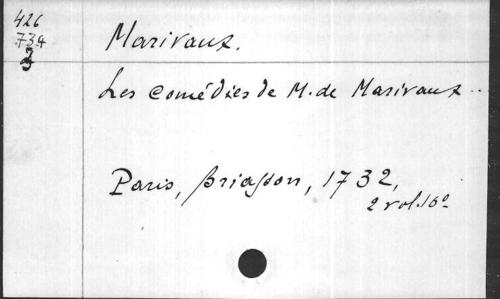 426
734
3
Marivaux.
Les Comédies de M. de Marivaux..
Paris, Briasson, 1732,
2 vol. 16º